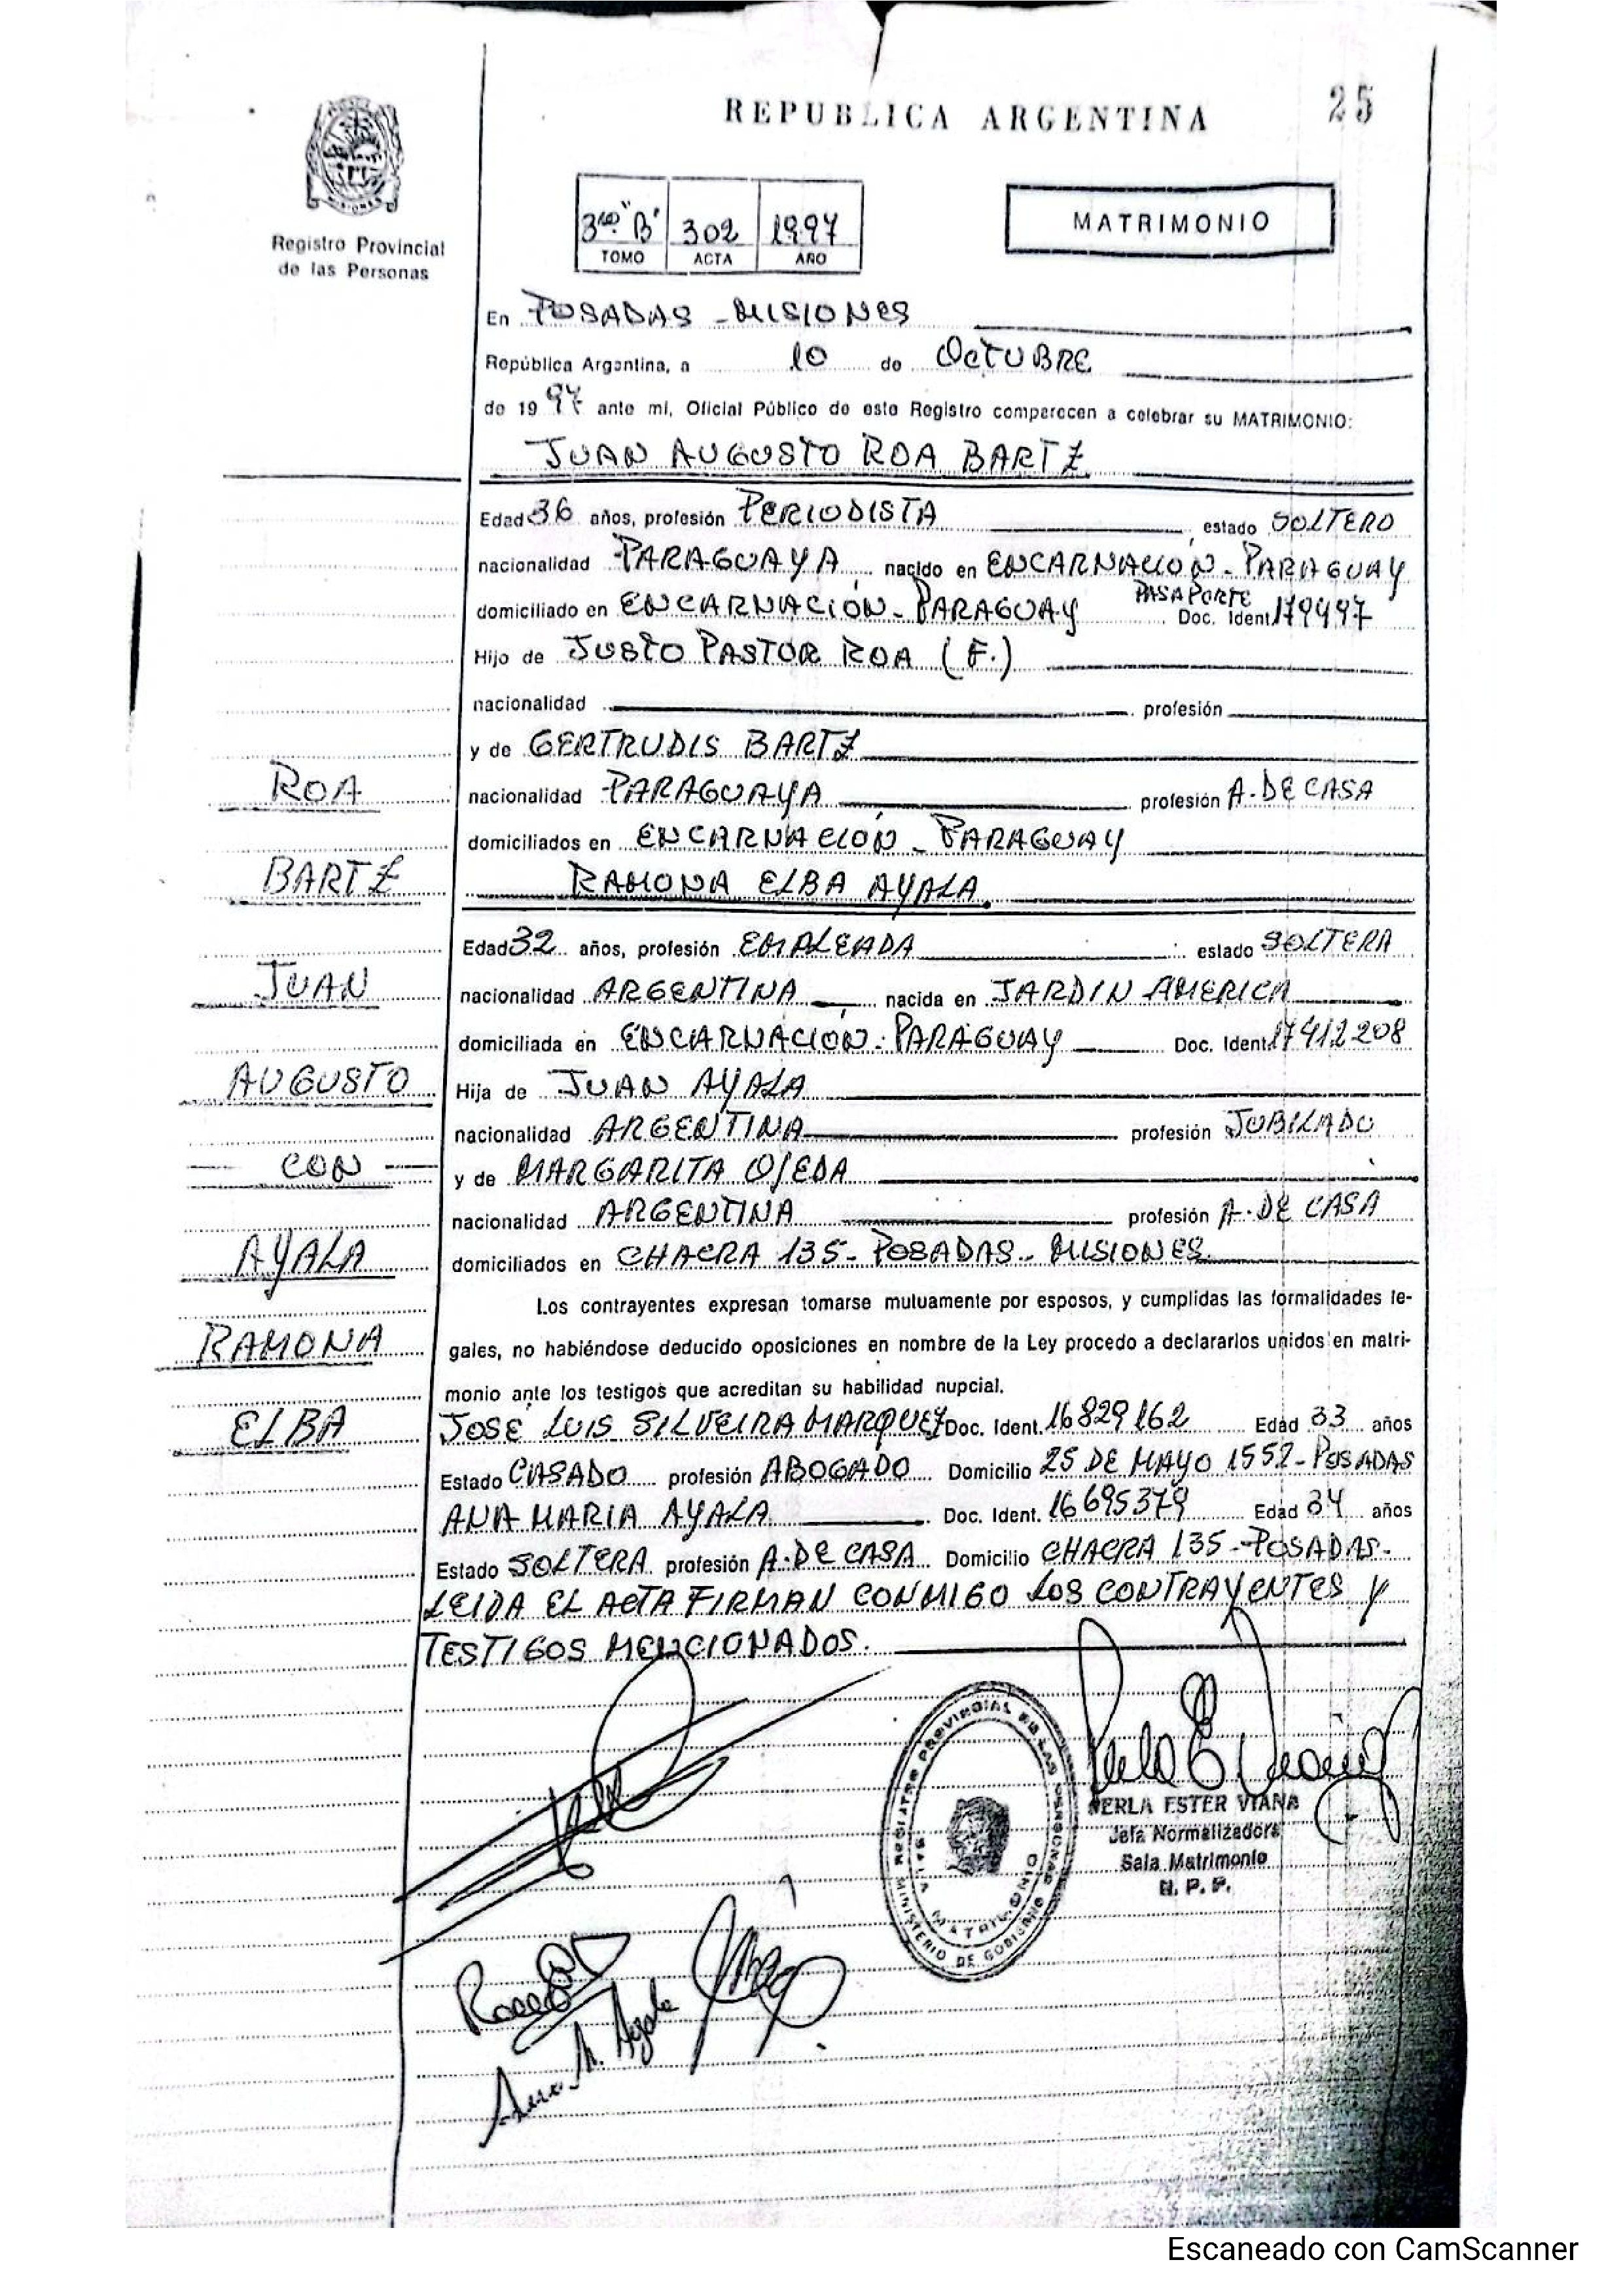 REPUBLICA ARGENTINA
25
MISIONES
Registro Provincial
de las Personas
3ro "B" 302 1997
TOMO ACTA AÑO
MATRIMONIO
En POSADAS - MISIONES
República Argentina, a 10 de OCTUBRE
de 1997 ante mi, Oficial Público de este Registro comparecen a celebrar su MATRIMONIO:
JUAN AUGUSTO ROA BARTZ
Edad 36 años, profesión PERIODISTA estado SOLTERO
nacionalidad PARAGUAYA nacido en ENCARNACION - PARAGUAY
domiciliado en ENCARNACIÓN - PARAGUAY PASAPORTE Doc. Ident. 179497
Hijo de JUSTO PASTOR ROA (F.)
nacionalidad profesión
y de GERTRUDIS BARTZ
nacionalidad PARAGUAYA profesión A. DE CASA
domiciliados en ENCARNACIÓN - PARAGUAY
RAMONA ELBA AYALA
Edad 32 años, profesión EMPLEADA estado SOLTERA
nacionalidad ARGENTINA nacida en JARDIN AMERICA
domiciliada en ENCARNACIÓN - PARAGUAY Doc. Ident. 17412208
Hija de JUAN AYALA
nacionalidad ARGENTINA profesión JUBILADO
y de MARGARITA OJEDA
nacionalidad ARGENTINA profesión A. DE CASA
domiciliados en CHACRA 135 - POSADAS - MISIONES
Los contrayentes expresan tomarse mutuamente por esposos, y cumplidas las formalidades le-
gales, no habiéndose deducido oposiciones en nombre de la Ley procedo a declararlos unidos en matri-
monio ante los testigos que acreditan su habilidad nupcial.
JOSÉ LUIS SILVEIRA MARQUEZ Doc. Ident. 16829162 Edad 33 años
Estado CASADO profesión ABOGADO Domicilio 25 DE MAYO 1552 - POSADAS
ANA MARIA AYALA Doc. Ident. 16695379 Edad 34 años
Estado SOLTERA profesión A. DE CASA Domicilio CHACRA 135 - POSADAS -
LEIDA EL ACTA FIRMAN CONMIGO LOS CONTRAYENTES Y
TESTIGOS MENCIONADOS.
ROA
BARTZ
JUAN
AUGUSTO
CON
AYALA
RAMONA
ELBA
REGISTRO PROVINCIAL DE LAS PERSONAS
SALA MATRIMONIO
MINISTERIO DE GOBIERNO
PERLA ESTER VIANA
Jefa Normalizadora
Sala Matrimonio
R. P. P.
Ana M. Ayala
Escaneado con CamScanner